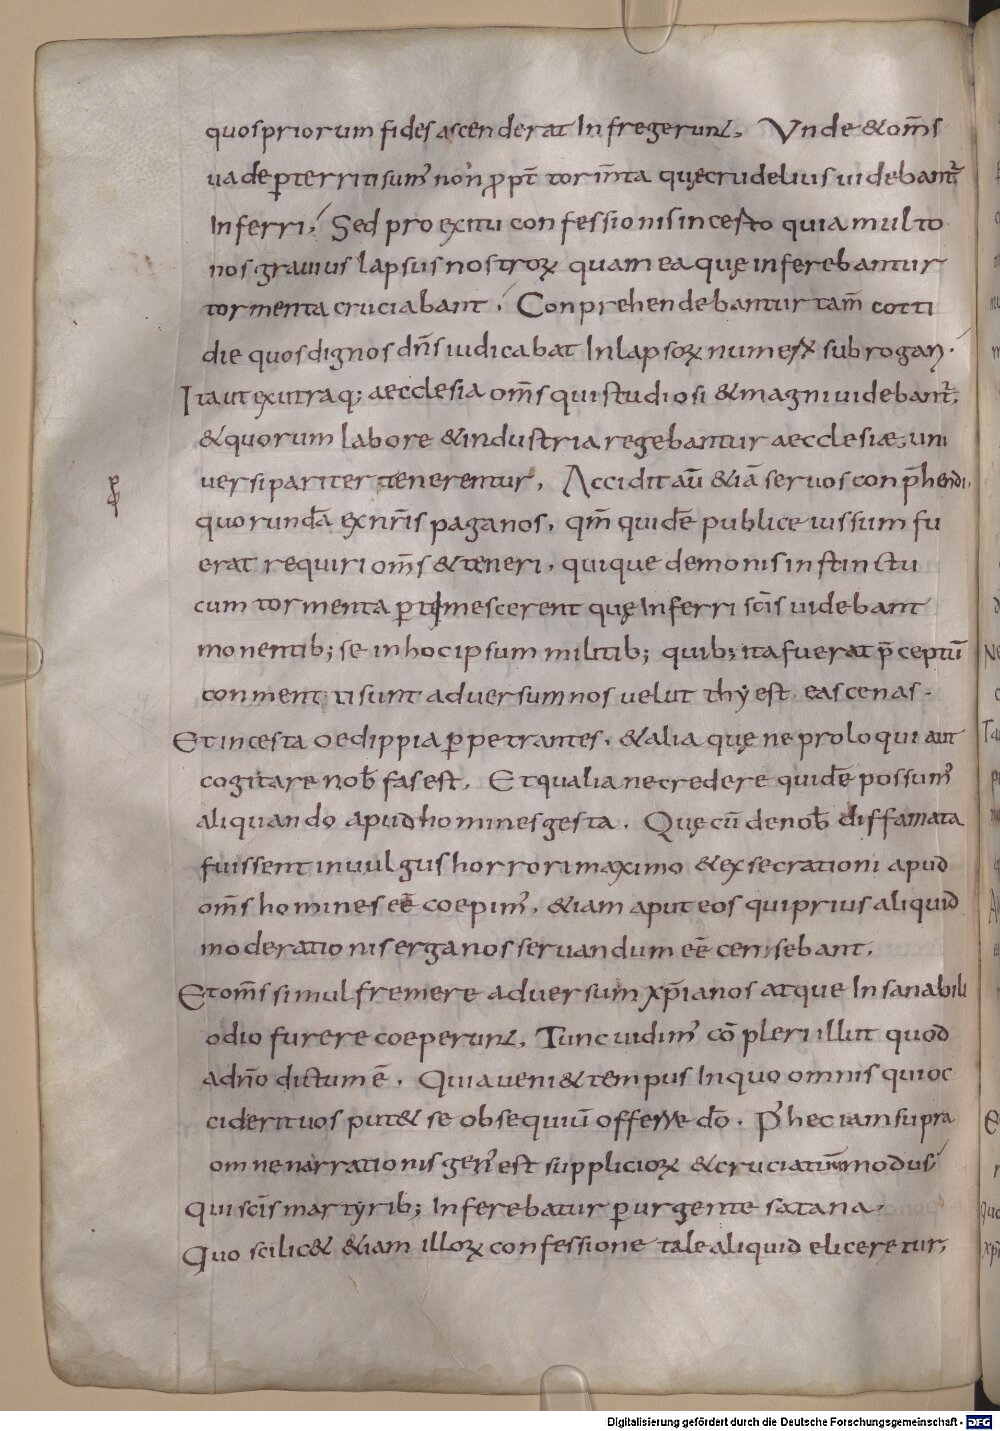 quos priorum fides ascenderat Infregerunt. Vnde & om̅s
uade p̱territi sum' non ꝓpt̅ torm̅ta quę crudelius uidebant̅
Inferri; Sed pro exitu confessionis incesto quia multo
nos grauius lapsus nostroꝝ quam ea quę inferebantur
tormenta cruciabant; Conprehendebantur tam̅ cotti
die quos dignos dn̅s iudicabat In lapsoꝝ numeꝝ subrogari.
Ita ut ex utraq; aecclesia om̅s qui studiosi & magni uidebant̅;
& quorum labore & industria regebantur aecclesiæ; uni
uersi pariter tenerentur. Accidit au̅ &ia̅ seruos conp̅hendi,
quorunda̅ ex nr̅is paganos, qm̅ quide̅ publice iussum fu
erat requiri om̅s & teneri, quique demonis instinctu
cum tormenta p̱timescerent quę Inferri sc̅is uidebant
monentib; se in hoc ipsum militib; quib; ita fuerat p̅ceptu̅
conmentiti sunt aduersum nos uelut thyesteas cenas.
Et incesta oedippia p̱petrantes, & alia quę ne proloqui aut
cogitare nob̅ fas est. Et qualia ne credere quide̅ possum'
aliquando apud homines gesta. Quę cu̅ de nob̅ diffamata
fuissent in uulgus horrori maximo & exsecrationi apud
om̅s homines ee̅ coepim', &iam aput eos qui prius aliquid
moderationis erga nos seruandum ee̅ censebant.
Et om̅s simul fremere aduersum xp̅ianos atque Insanabili
odio furere coeperunt. Tunc uidim' co̅pleri illut quod
a dn̅o dictum e̅. Quia ueni& tempus In quo omnis qui oc
ciderit uos put& se obsequiu̅ offerre do̅. P' hec iam supra
omne narrationis gen' est supplicioꝝ & cruciatuum modus
qui sc̅is martyrib; Inferebatur p̱urgente satana,
Quo scilic& &iam illoꝝ confessione tale aliquid eliceretur,
Digitalisierung gefördert durch die Deutsche Forschungsgemeinschaft - DFG